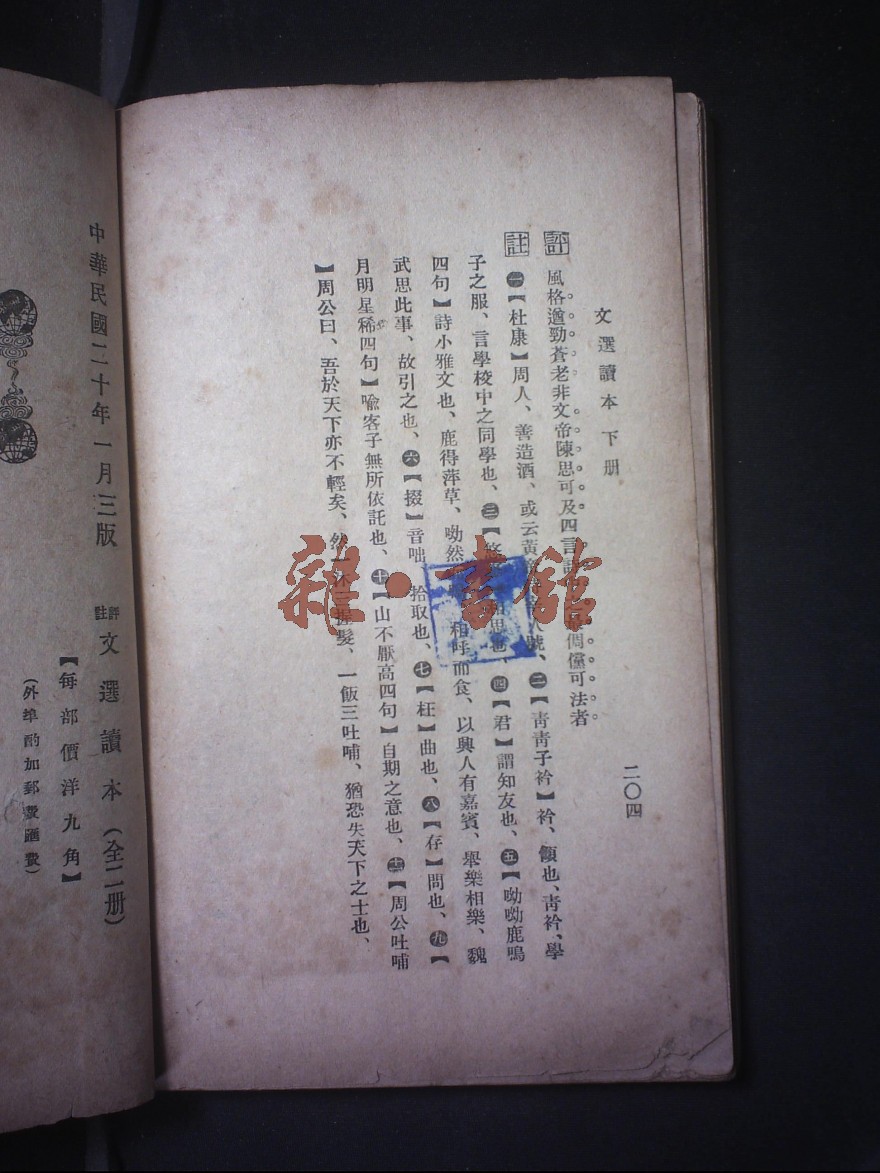 文選讀本 下册
二〇四
評 風格遒勁蒼老非文帝陳思可及四言詩倜儻可法者
註 一【杜康】周人、善造酒、或云黃帝號、二【青青子衿】衿、領也、青衿、學
子之服、言學校中之同學也、三【悠相思也、四【君】謂知友也、五【呦呦鹿鳴
四句】詩小雅文也、鹿得萍草、呦然相呼而食、以興人有嘉賓、舉樂相樂、魏
武思此事、故引之也、六【掇】音咄 拾取也、七【枉】曲也、八【存】問也、九【
月明星稀四句】喩客子無所依託也、十【山不厭高四句】自期之意也、十一【周公吐哺
】周公曰、吾於天下亦不輕矣、然一沐三握髮、一飯三吐哺、猶恐失天下之士也、
中華民國二十年一月三版
評註 文選讀本（全二册）
【每部價洋九角】
（外埠酌加郵費匯費）
雜·書館